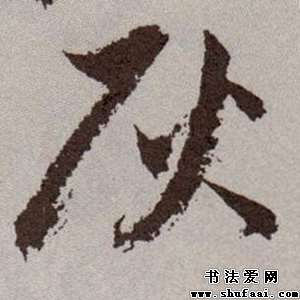 灰
书法爱网
www.shufaai.com